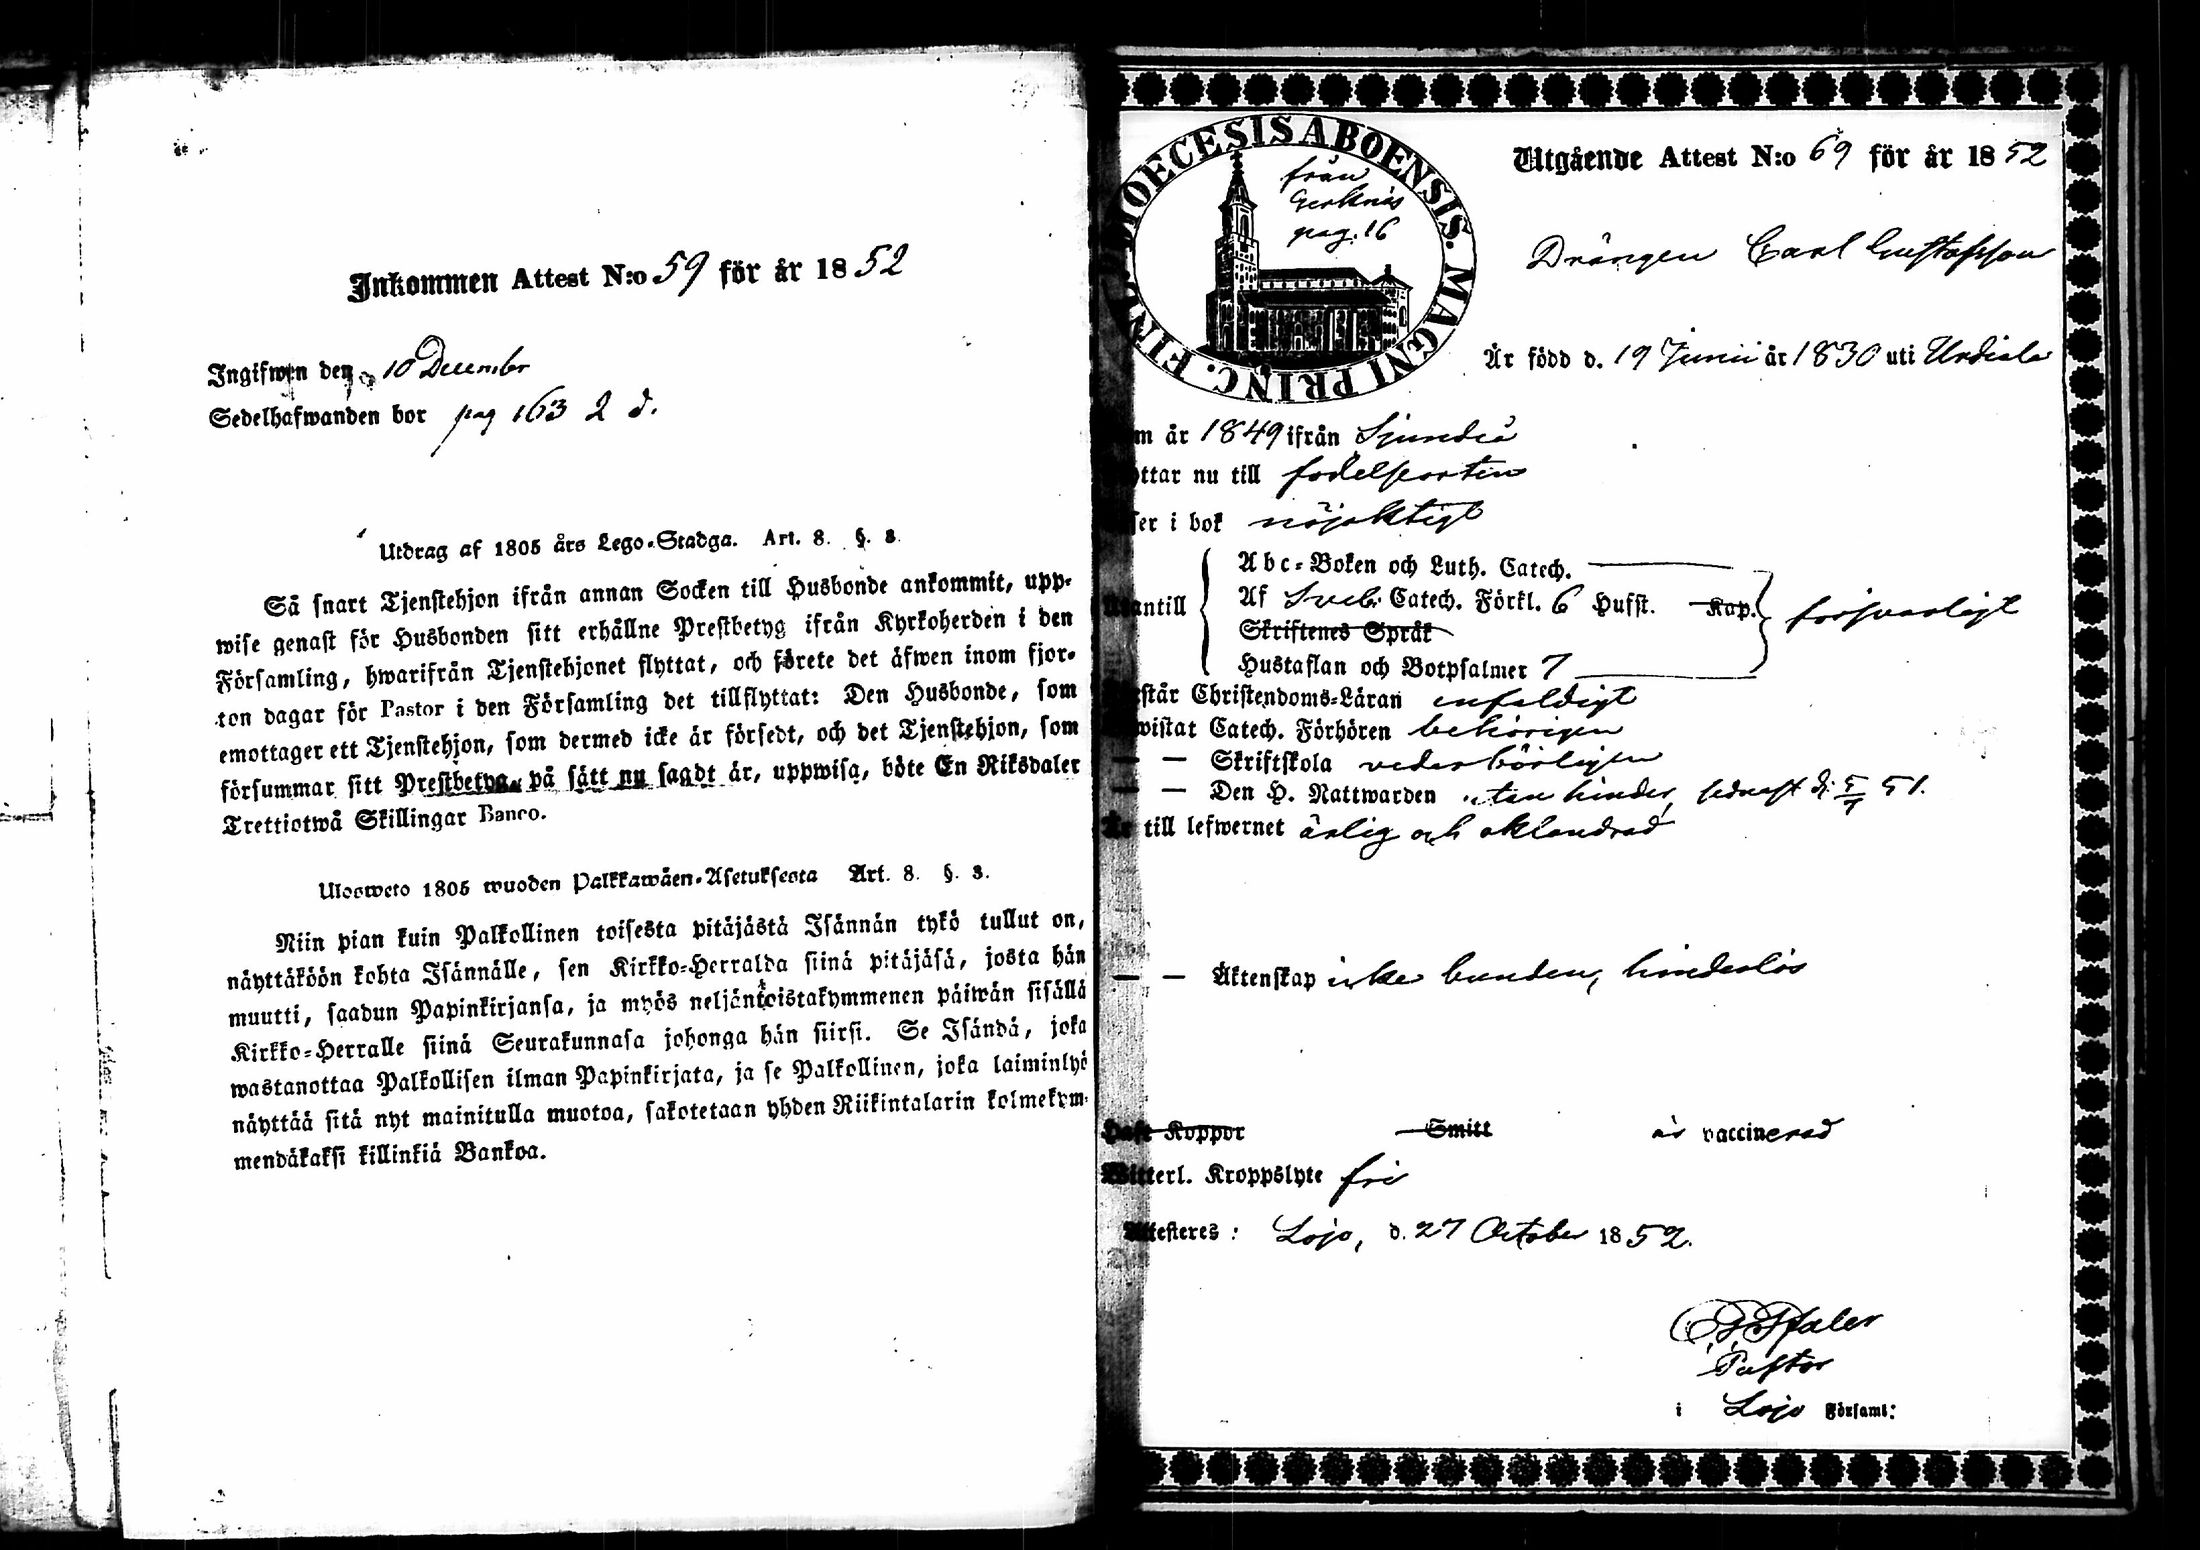 Inkommen Attest N:o 59 för år 1852
Ingifwen den 10 December
Sedelhafwanden bor pag 163 2 d.
Utdrag af 1805 års Lego-Stadga. Art. 8. §. 3
Så snart Tjenstehjon ifrån annan Socken till Husbonde ankommit, upp-
wise genast för Husbonden sitt erhållne Prestbetyg ifrån Kyrkoherden i den
Församling, hwarifrån Tjenstehjonet flyttat, och förete det äfwen inom fjor-
ton dagar för Pastor i den Församling det tillflyttat: Den Husbonde, som
emottager ett Tjenstehjon, som dermed icke är försedt, och det Tjenstehjon, som
försummar sitt Prestbetyg, på sätt nu sagdt är, uppwisa, böte En Riksdaler
Trettiotwå Skillingar Banco.
Ulosweto 1805 wuoden Palkkawäen-Asetuksesta Art. 8. §. 3.
Niin pian kuin Palkollinen toisesta pitäjästä Isännän tykö tullut on,
näyttäköön kohta Isännälle, sen Kirkko-Herralda siinä pitäjäsä, josta hän
muutti, saadun Papinkirjansa, ja myös neljäntoistakymmenen päiwän sisällä
Kirkko-Herralle siinä Seurakunnasa johonga hän siirsi. Se Isändä, joka
wastanottaa Palkollisen ilman Papinkirjata, ja se Palkollinen, joka laiminlyö
näyttää sitä nyt mainitulla muotoa, sakotetaan yhden Riikintalarin kolmekym-
mendäkaksi killinkiä Bankoa.
DIOECESIS ABOENSIS. MAGNI PRINC. FINL.
från
Gerknäs
pag. 16
Utgående Attest N:o 69 för år 1852
Drängen Carl Gustafsson
Är född d. 19 Junii år 1830 uti Urdiala
m år 1849 ifrån Sjundeå
ttar nu till födelseorten
ser i bok nöjaktigt
Utantill
Abc-Boken och Luth. Catech.
Af Sveb. Catech. Förkl. 6 Hufst. Kap.
Skriftenes Språk
Hustaflan och Botpsalmer 7
försvarligt
står Christendoms-Läran enfaldigt
wistat Catech. Förhören behörigen
— — Skriftskola vederbörligen
— — Den H. Nattwarden utan hinder, sednast d. 5/7 51.
Är till lefwernet ärlig och oklandrad
— — Äktenskap icke bunden, hinderlös
Haft Koppor Smitt är vaccinerad
Witterl. Kroppslyte fri
Attesteres: Lojo, d. 27 October 1852.
Pastor
i Lojo Församl: